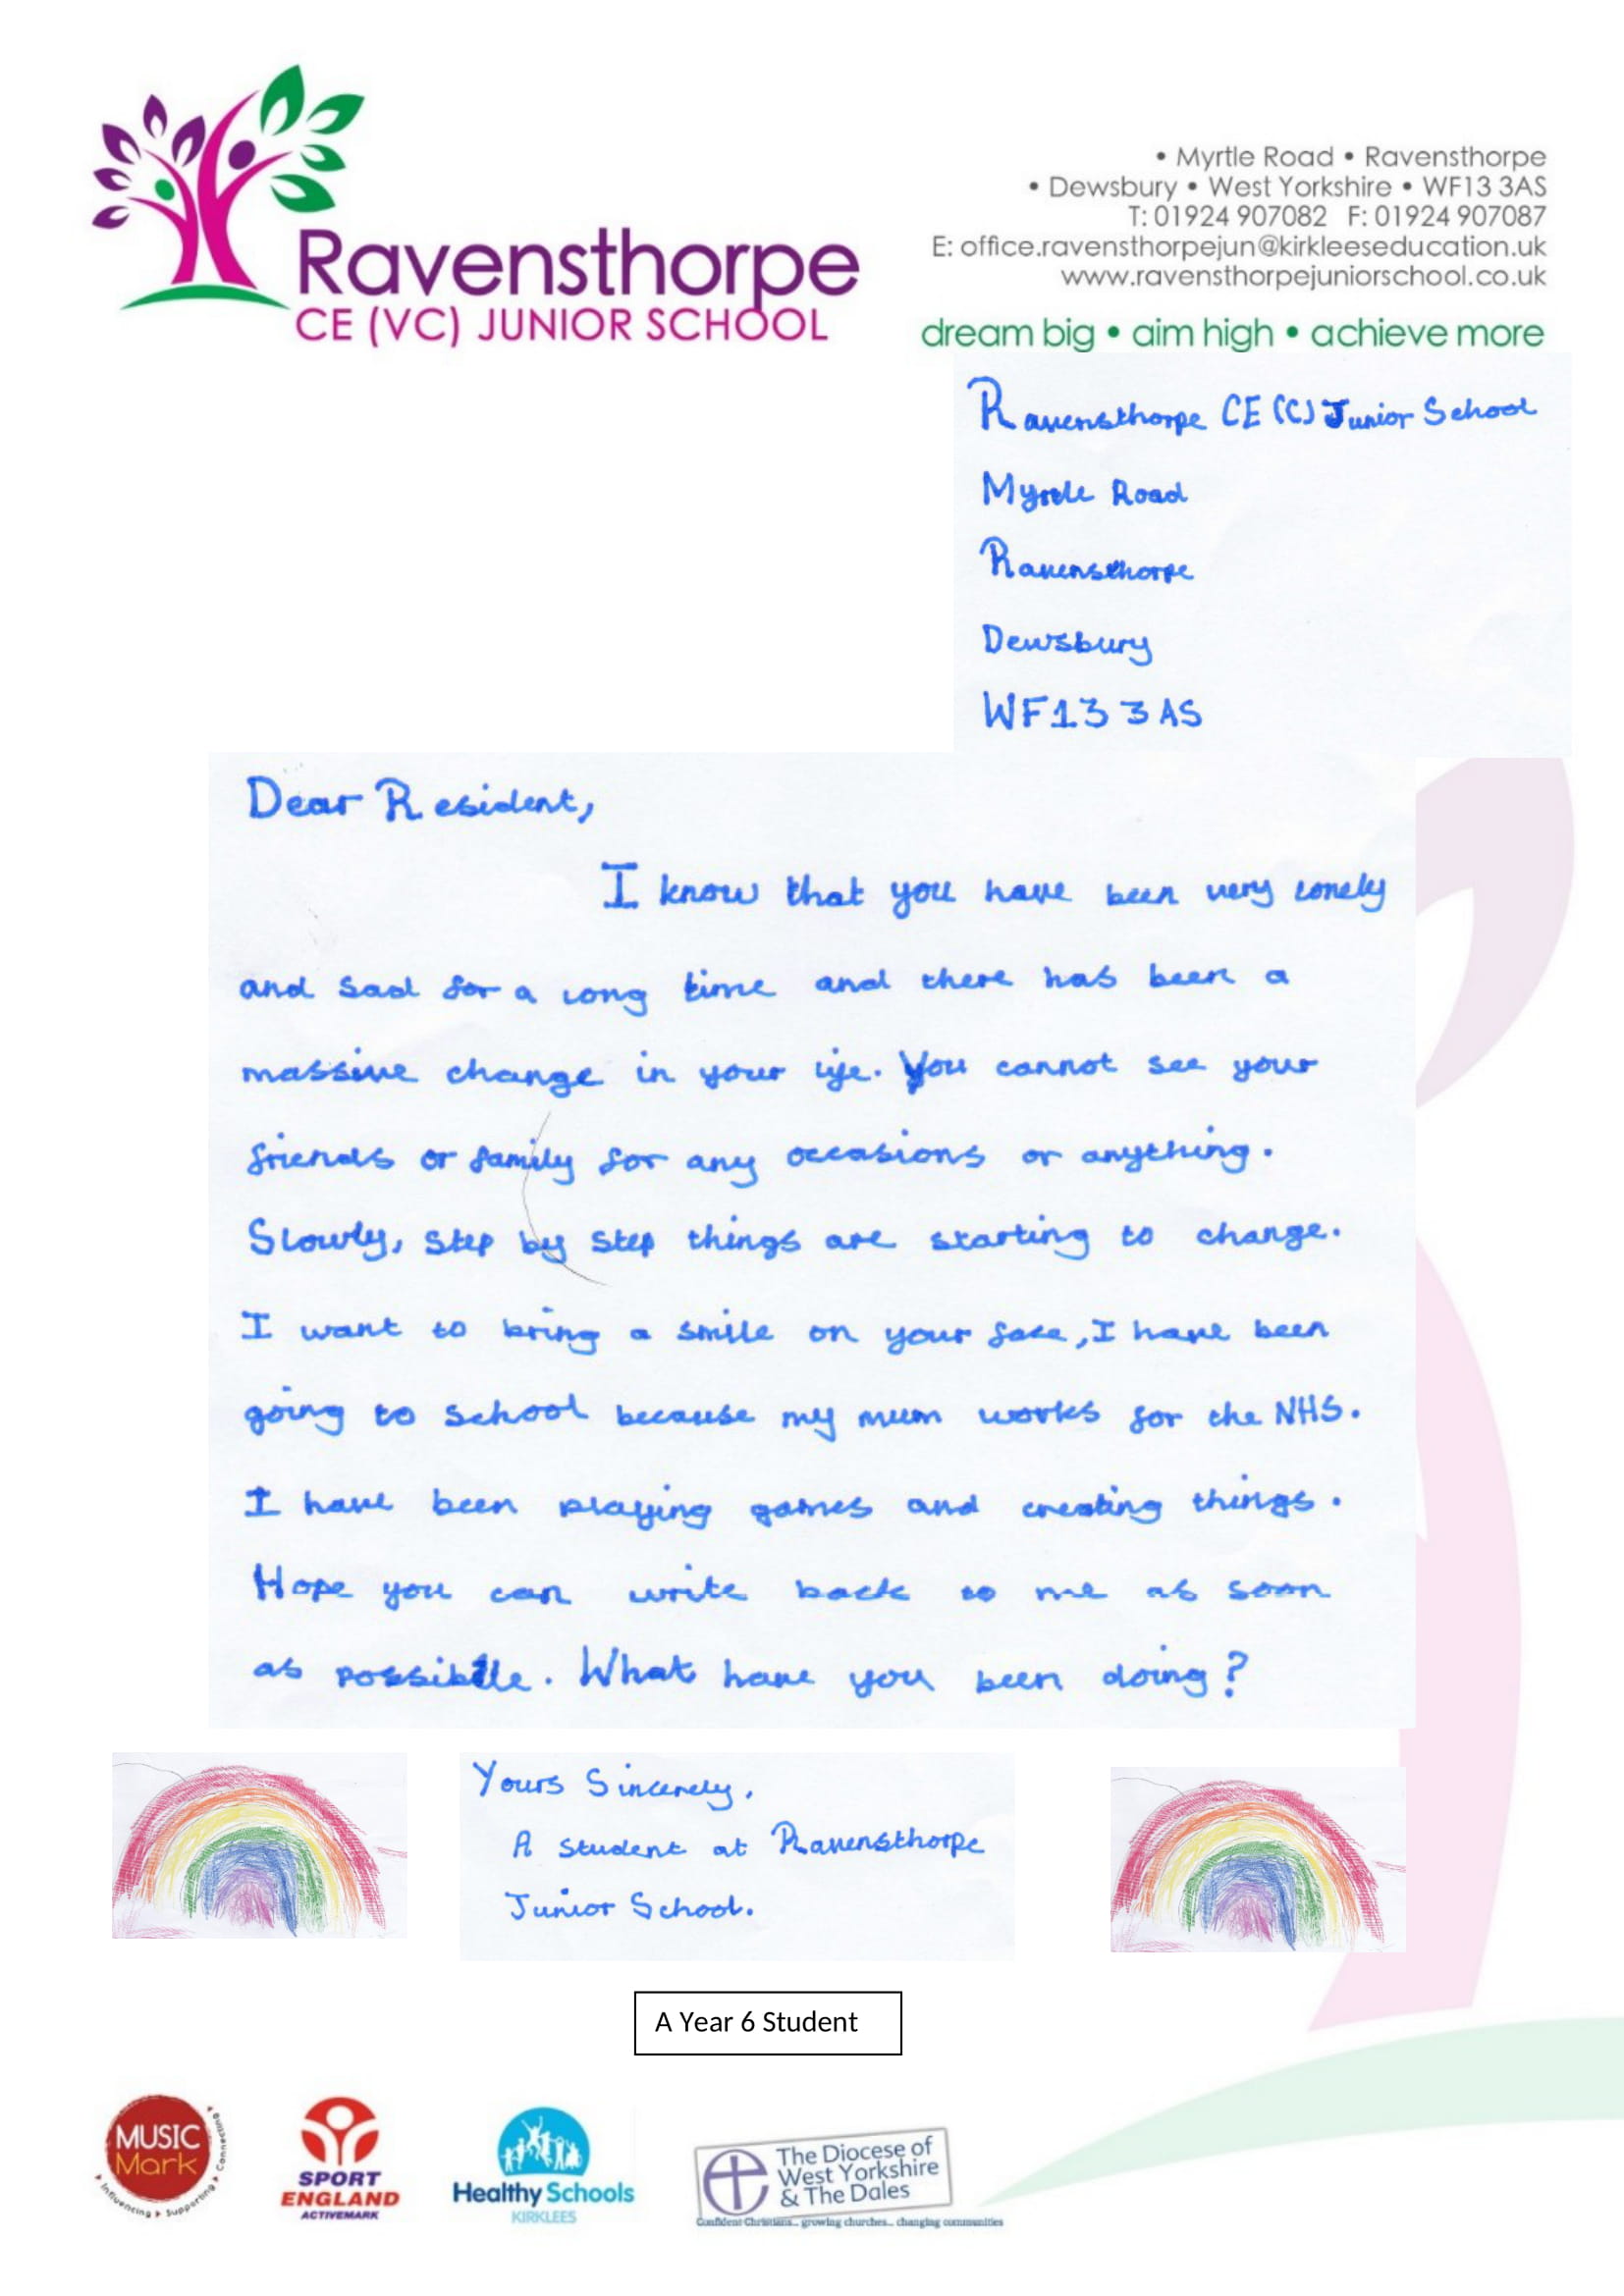 Ravensthorpe
CE (VC) JUNIOR SCHOOL
• Myrtle Road • Ravensthorpe
• Dewsbury • West Yorkshire • WF13 3AS
T: 01924 907082 F: 01924 907087
E: office.ravensthorpejun@kirkleeseducation.uk
www.ravensthorpejuniorschool.co.uk
dream big • aim high • achieve more
Ravensthorpe CE (C) Junior School
Myrtle Road
Ravensthorpe
Dewsbury
WF13 3AS
Dear Resident,
I know that you have been very lonely
and sad for a long time and there has been a
massive change in your life. You cannot see your
friends or family for any occasions or anything.
Slowly, step by step things are starting to change.
I want to bring a smile on your face, I have been
going to school because my mum works for the NHS.
I have been playing games and creating things.
Hope you can write back to me as soon
as possible. What have you been doing?
Yours Sincerely,
A student at Ravensthorpe
Junior School.
A Year 6 Student
MUSIC
Mark
Influencing Supporting Connecting
SPORT
ENGLAND
ACTIVEMARK
Healthy Schools
KIRKLEES
The Diocese of
West Yorkshire
& The Dales
Confident Christians... growing churches... changing communities